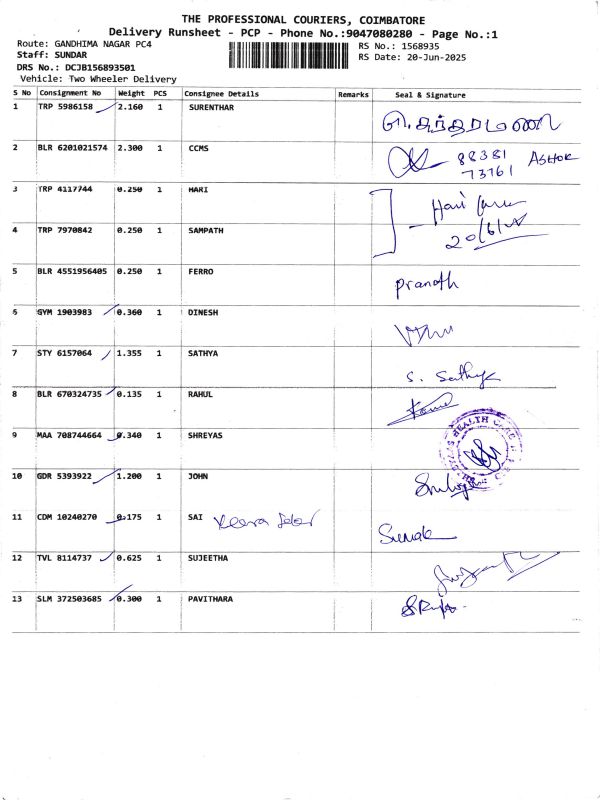 THE PROFESSIONAL COURIERS, COIMBATORE
Delivery Runsheet - PCP - Phone No.:9047080280 - Page No.:1
Route: GANDHIMA NAGAR PC4
RS No.: 1568935
Staff: SUNDAR
RS Date: 20-Jun-2025
DRS No.: DCJB156893501
Vehicle: Two Wheeler Delivery
S No Consignment No Weight PCS Consignee Details Remarks Seal & Signature
1 TRP 5986158 2.160 1 SURENTHAR
2 BLR 6201021574 2.300 1 CCMS 88381 ASHOK
73761
3 TRP 4117744 0.250 1 HARI Hari
4 TRP 7970842 0.250 1 SAMPATH 20/6/25
5 BLR 4551956405 0.250 1 FERRO Pranoth
6 GYM 1903983 0.360 1 DINESH
7 STY 6157064 1.355 1 SATHYA S. Sathya
8 BLR 670324735 0.135 1 RAHUL
9 MAA 708744664 0.340 1 SHREYAS HEALTH CARE
10 GDR 5393922 1.200 1 JOHN
11 CDM 10240270 0.175 1 SAI
12 TVL 8114737 0.625 1 SUJEETHA
13 SLM 372503685 0.300 1 PAVITHARA